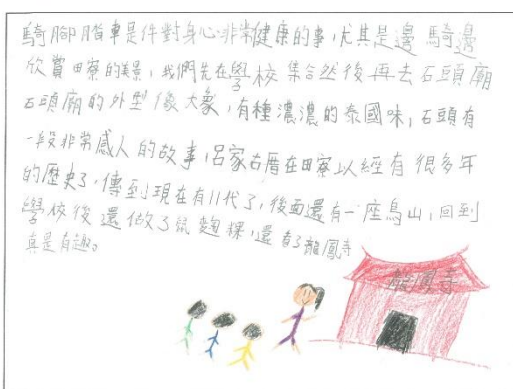 騎腳踏車是件對身心非常健康的事,尤其是邊騎邊
欣賞田寮的美景,我們先在學校集合然後再去石頭廟
石頭廟的外型像大象,有種濃濃的泰國味,石頭有
一段非常感人的故事,呂家古厝在田寮以經有很多年
的歷史了,傳到現在有11代了,後面還有一座烏山,回到
學校後還做了鼠麴粿,還看了龍鳳寺
真是有趣。
龍鳳寺